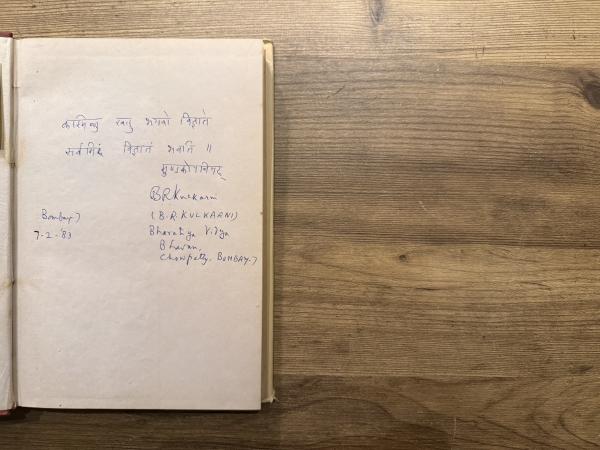 कस्मिन्नु खलु भगवो विज्ञाते
सर्वमिदं विज्ञातं भवति ॥
मुण्डकोपनिषद्
BRKulkarni
Bombay 7 (B.R.KULKARNI)
7-2-'83 Bharatiya Vidya
Bhavan,
Chowpatty, BOMBAY-7